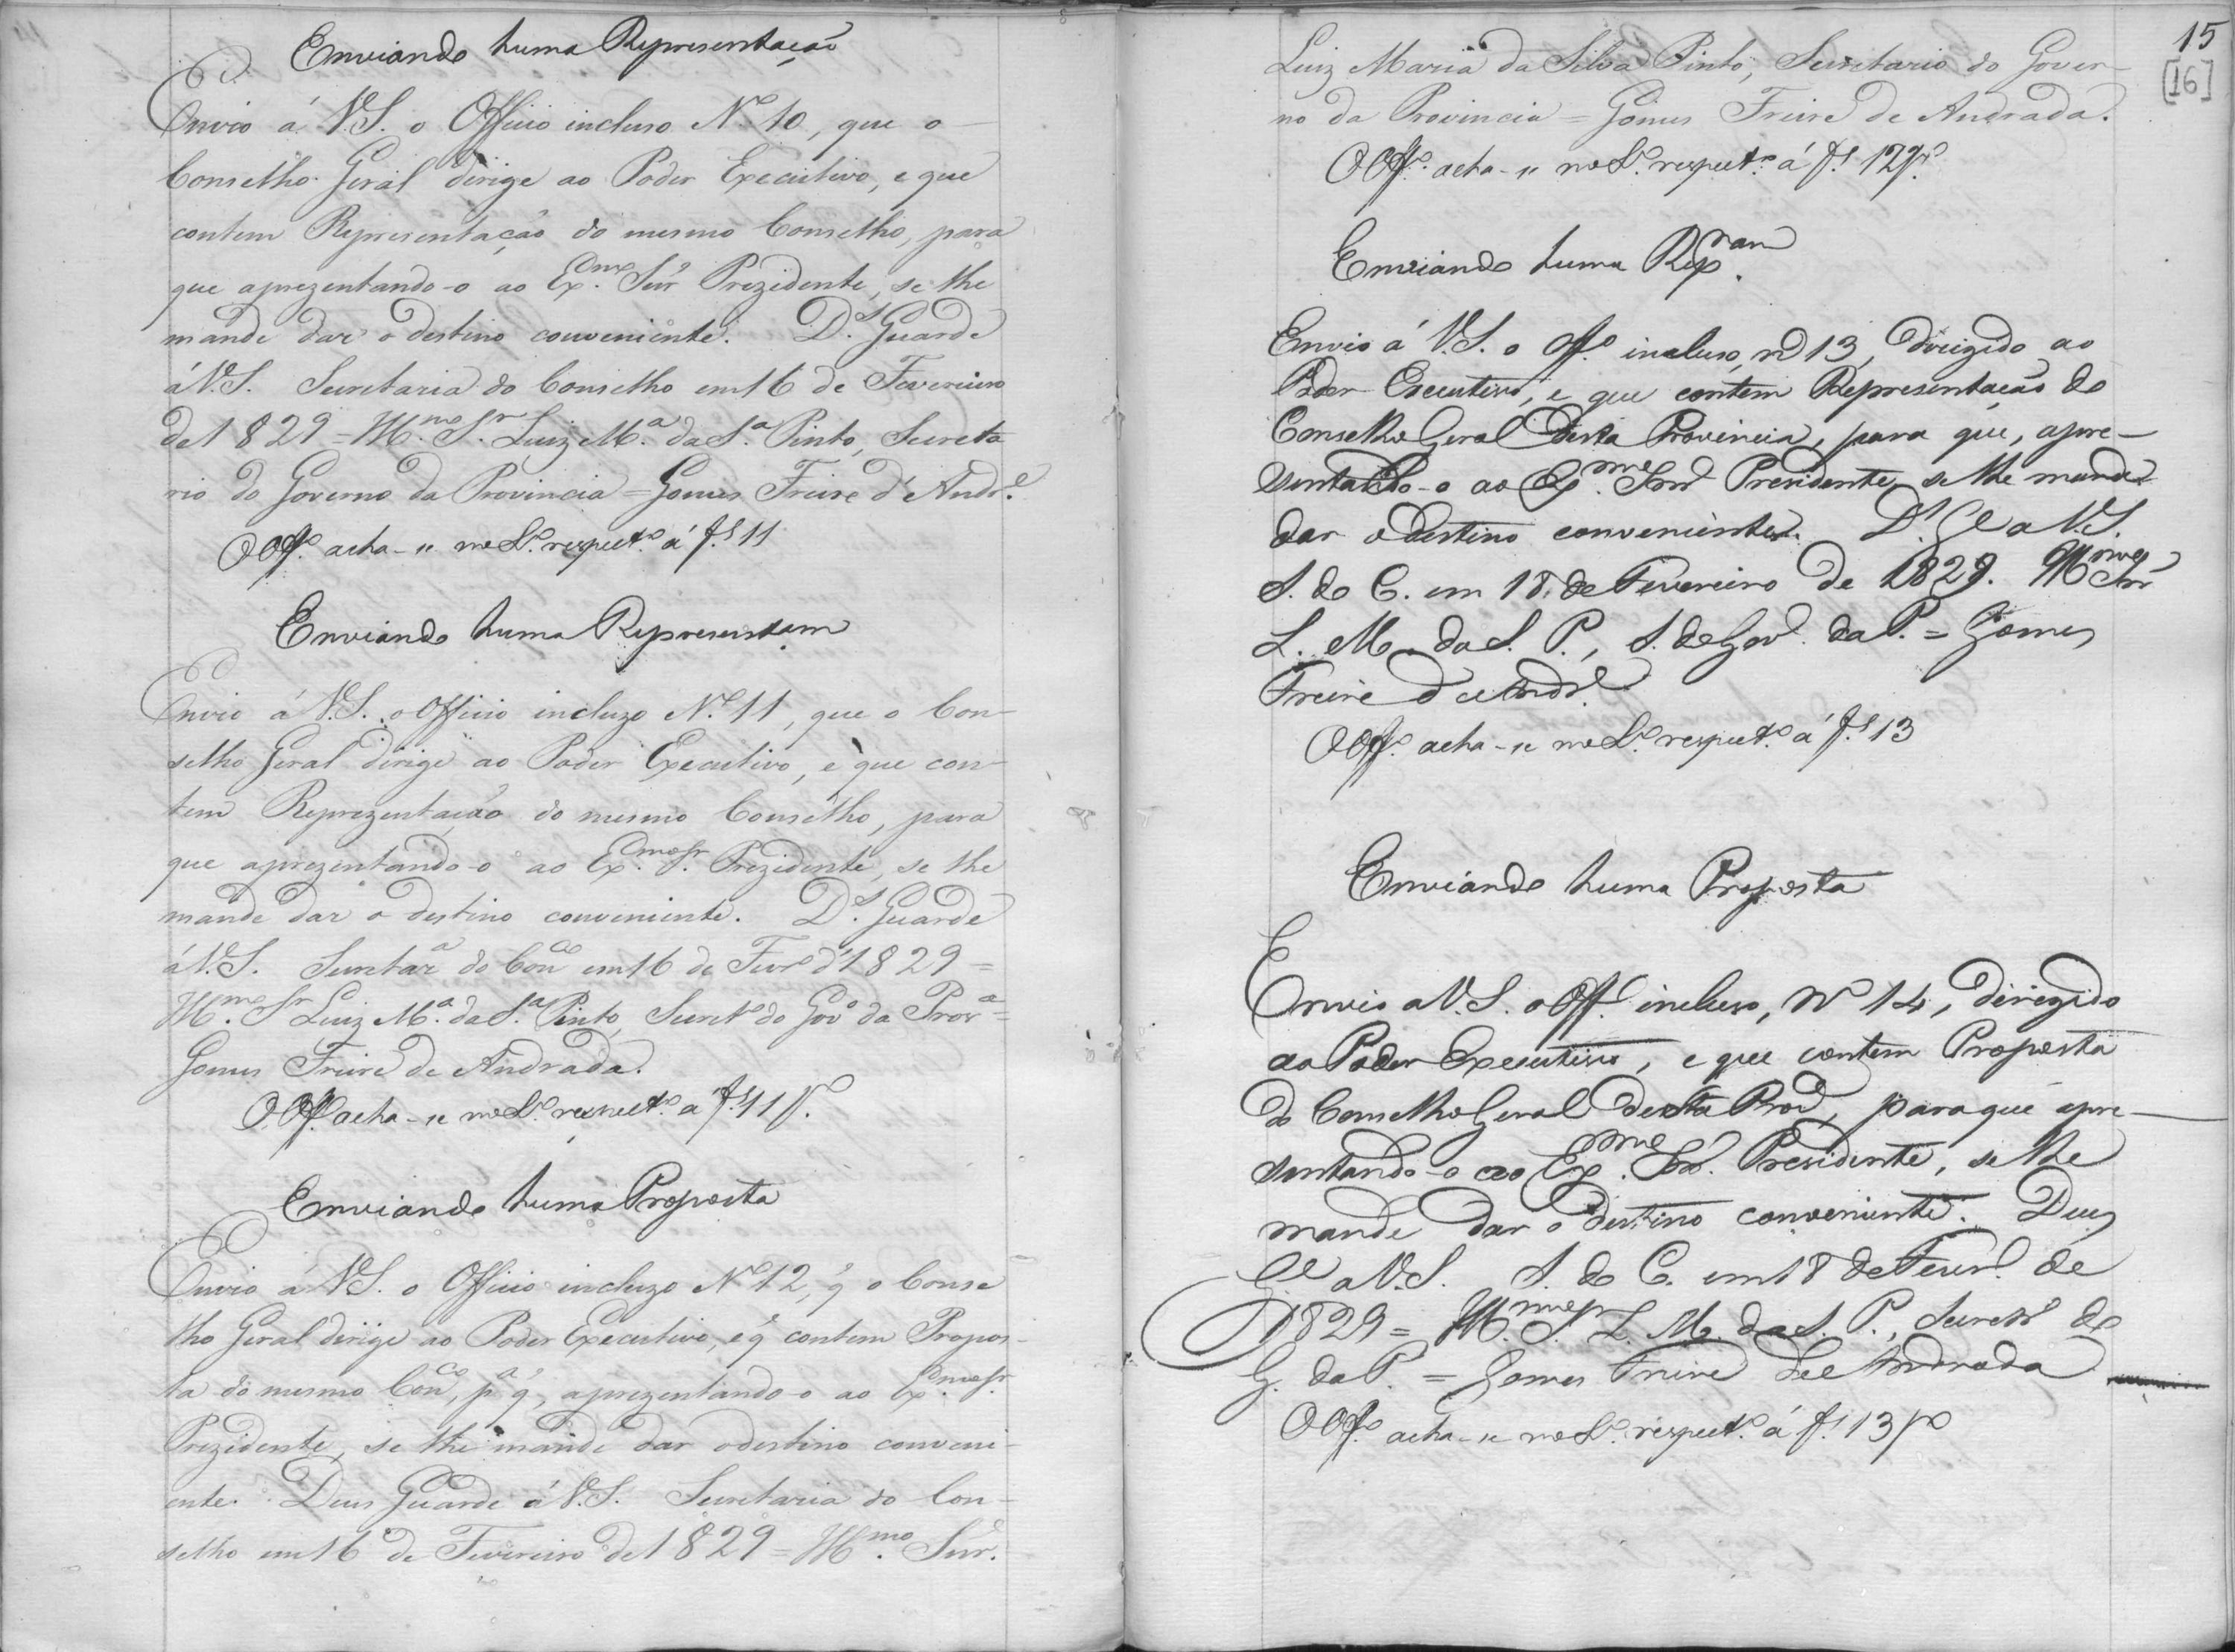 Enviando huma Representação
Envio á V.S. o Officio incluso N.º 10, que o
Conselho Geral dirige ao Poder Executivo, e que
contem Representação do mesmo Conselho, para
que aprezentando-o ao Ex.mo Snr Prezidente, se lhe
mande dar o destino conveniente. D.s Guarde
á V.S. Secretaria do Conselho em 16 de Fevereiro
de 1829 = Ill.mo Sr. Luiz M.a da S.a Pinto, Secreta
rio do Governo da Provincia = Gomes Freire d'Andr.e
O Off.o acha-se no L.o respect.o á f.s 11
Enviando huma Representam
Envio á V.S. o Officio incluzo N.º 11, que o Con-
selho Geral dirige ao Poder Executivo, e que con-
tem Reprezentação do mesmo Conselho, para
que aprezentando-o ao Ex.mo Sr. Prezidente, se lhe
mande dar o destino conveniente. D.s Guarde
á V.S. Secretar.a do Con.co em 16 de Fevr.o d'1829 =
Ill.mo Sr Luiz M.a da S.a Pinto, Secret.o do Gov.o da Prov.a =
Gomes Freire de Andrada.
O Off.o acha-se no L.o respect.o a f.s 11 v.
Enviando huma Proposta
Envio á V.S. o Officio incluzo N.º 12, q̃ o Conse
lho Geral dirige ao Poder Executivo, e q̃ contem Propos-
ta do mesmo Con.co, p.a q̃, aprezentando-o ao Ex.mo Sr.
Prezidente, se lhe mande dar o destino conveni-
ente. Deus Guarde á V.S. Secretaria do Con-
selho em 16 de Fevereiro de 1829 = Ill.mo Snr.
15
[16]
Luiz Maria da Silva Pinto, Secretario do Gover-
no da Provincia = Gomes Freire de Andrada.
O Off.o acha-se no L.o respect.o á f.s 12 v.o
Enviando huma Rep.nam
Envio á V.S. o Off.o incluso, nº 13, dirigido ao
Poder Executivo, e que contem Representação do
Conselho Geral desta Provincia, para que, apre-
sentando-o ao Ex.mo Snr Presidente, se lhe mande
dar o destino conveniente. D.s G.e a V.S.
S. do C. em 18 de Fevereiro de 1829. Ill.mo Snr
L. M. da S. P., S. do Gov.o da P. = Gomes
Freire d'Andr.e
O Off.o acha-se no L.o respect.o á f.s 13
Enviando huma Proposta
Envio a V.S. o Off.o incluso, Nº 14, dirigido
ao Poder Executivo, e que contem Proposta
do Conselho Geral desta Prov.a, para que apre-
sentando-o ao Ex.mo Snr. Presidente, se lhe
mande dar o destino conveniente. Deus
G.e a V.S. S. do C. em 18 de Fevr.o de
1829 = Ill.mo Sr. L. M. da S. P., Secretr.o do
G. da P. = Gomes Freire de Andrada
O Off.o acha-se no L.o respect.o á f.s 13 v.o